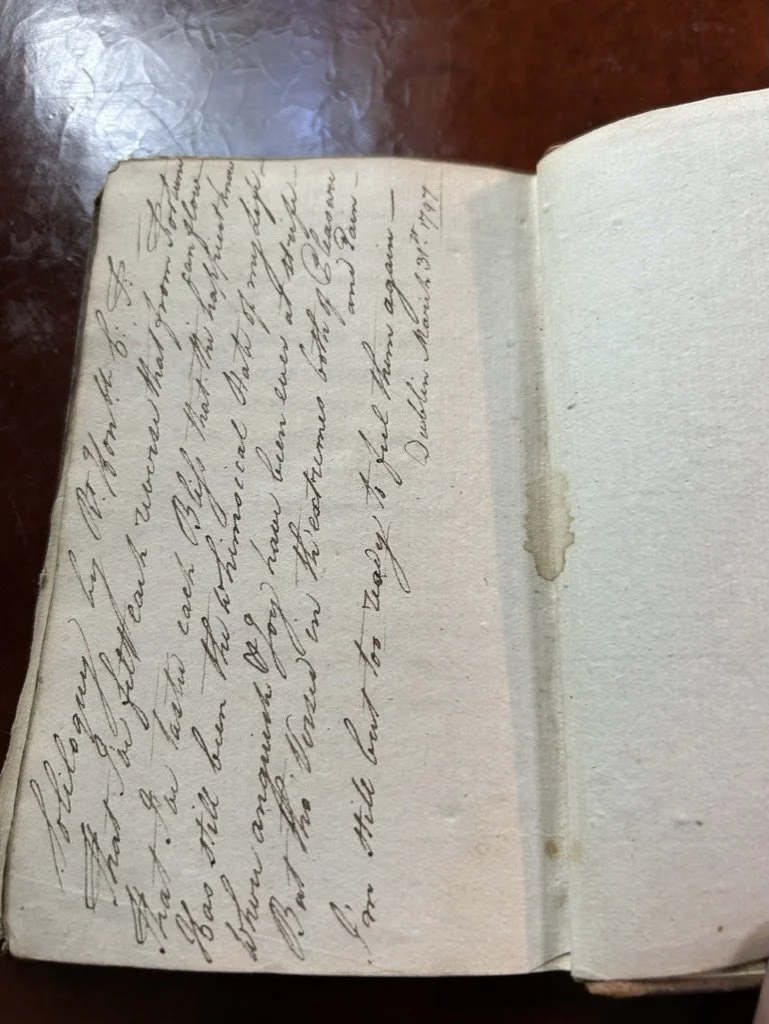 Soliloquy by Rt. Hon.ble C. F. —
That I've felt each reverse that from Fortune
can flow
That I've tasted each Bliss that the happiest know
Has still been the whimsical State of my Life —
Where anguish & Joy have been ever at strife —
But tho' Versed in th'extremes both of Pleasure
and Pain —
I'm still but too ready to feel them again —
Dublin March 31st. 1797